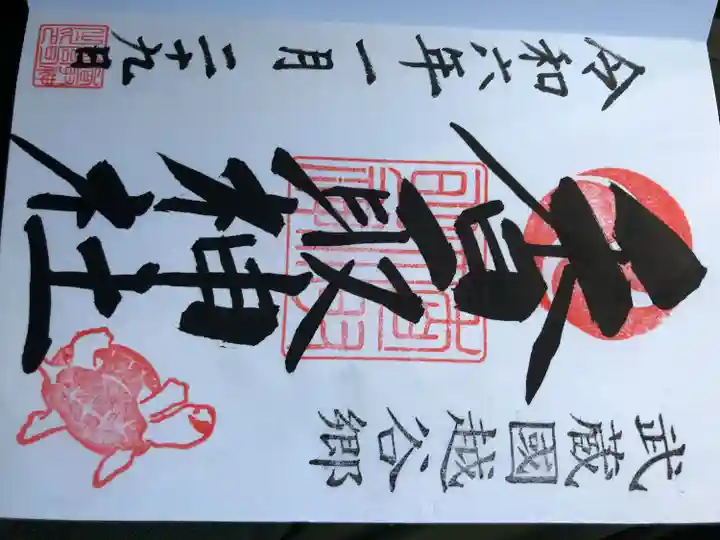 武蔵國越谷郷
香取神社
令和六年一月二十九日